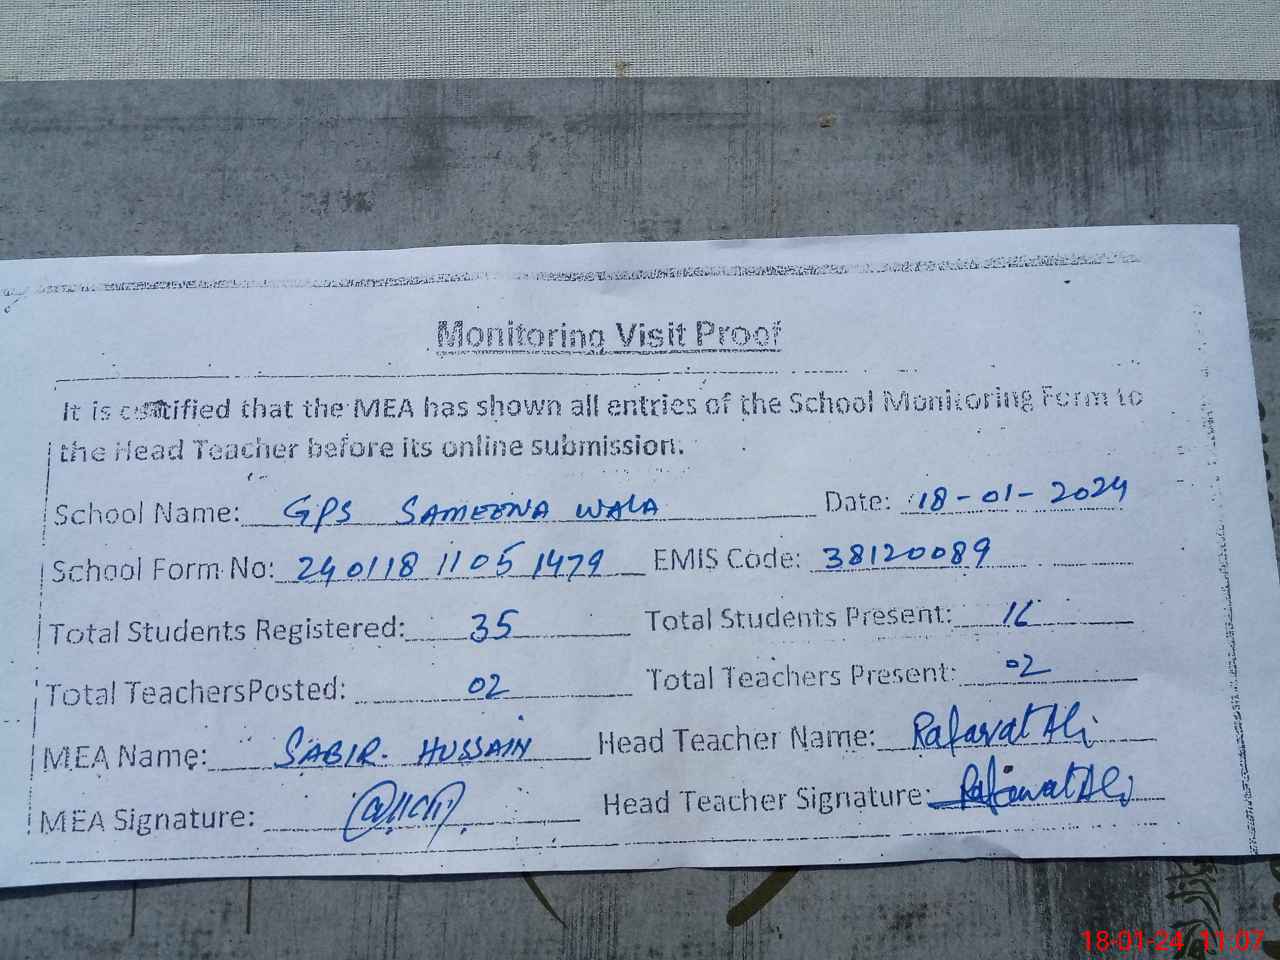 Monitoring Visit Proof
It is certified that the MEA has shown all entries of the School Monitoring Form to
the Head Teacher before its online submission.
School Name: GPS SAMEENA WALA Date: 18-01-2024
School Form No: 240118 1105 1479 EMIS Code: 38120089
Total Students Registered: 35 Total Students Present: 16
Total TeachersPosted: 02 Total Teachers Present: 02
MEA Name: SABIR. HUSSAIN Head Teacher Name: Rafawat Ali
MEA Signature: Head Teacher Signature: Rafawat Ali
18-01-24 11:07